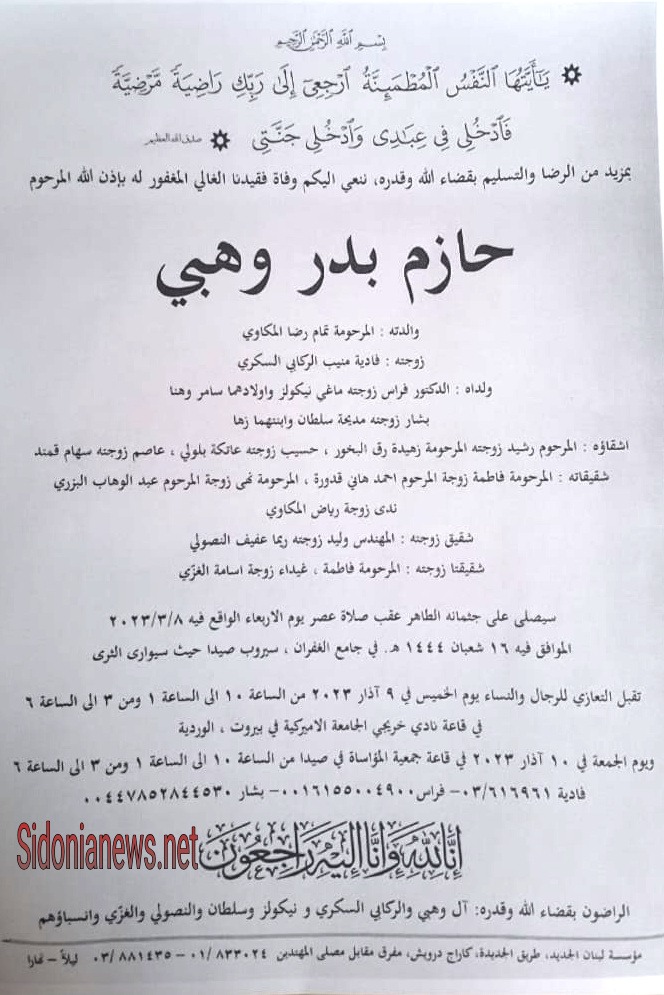 بِسْمِ اللَّهِ الرَّحْمَنِ الرَّحِيمِ
يَا أَيَّتُهَا النَّفْسُ الْمُطْمَئِنَّةُ ارْجِعِي إِلَى رَبِّكِ رَاضِيَةً مَرْضِيَّةً
فَادْخُلِي فِي عِبَادِي وَادْخُلِي جَنَّتِي صدق الله العظيم
بمزيد من الرضا والتسليم بقضاء الله وقدره، ننعي اليكم وفاة فقيدنا الغالي المغفور له بإذن الله المرحوم
حازم بدر وهبي
والدته : المرحومة تمام رضا المكاوي
زوجته : فادية منيب الركابي السكري
ولداه : الدكتور فراس زوجته ماغي نيكولز واولادهما سامر وهنا
بشار زوجته مديحة سلطان وابنتهما زها
اشقاؤه : المرحوم رشيد زوجته المرحومة زهيدة رق البخور ، حسيب زوجته عاتكة بلولي ، عاصم زوجته سهام قمند
شقيقاته : المرحومة فاطمة زوجة المرحوم احمد هاني قدورة ، المرحومة نهى زوجة المرحوم عبد الوهاب البزري
ندى زوجة رياض المكاوي
شقيق زوجته : المهندس وليد زوجته ريما عفيف النصولي
شقيقتا زوجته : المرحومة فاطمة ، غيداء زوجة اسامة الغزّي
سيصلى على جثمانه الطاهر عقب صلاة عصر يوم الاربعاء الواقع فيه ٢٠٢٣/٣/٨
الموافق فيه ١٦ شعبان ١٤٤٤ هـ. في جامع الغفران ، سيروب صيدا حيث سيوارى الثرى
تقبل التعازي للرجال والنساء يوم الخميس في ٩ آذار ٢٠٢٣ من الساعة ١٠ الى الساعة ١ ومن ٣ الى الساعة ٦
في قاعة نادي خريجي الجامعة الاميركية في بيروت ، الوردية
ويوم الجمعة في ١٠ آذار ٢٠٢٣ في قاعة جمعية المؤاساة في صيدا من الساعة ١٠ الى الساعة ١ ومن ٣ الى الساعة ٦
فادية ٠٣/٦١٦٩٦١– فراس٠٠١٦١٥٥٠٠٤٩٠٠– بشار ٠٠٤٤٧٨٥٢٨٤٤٥٣٠
إِنَّا لِلَّهِ وَإِنَّا إِلَيْهِ رَاجِعُونَ
Sidonianews.net
الراضون بقضاء الله وقدره: آل وهبي والركابي السكري و نيكولز وسلطان والنصولي والغزّي وانسباؤهم
مؤسسة لبنان الجديد، طريق الجديدة، كاراج درويش، مفرق مقابل مصلى المهندين ٠١/ ٨٣٣٠٢٤ – ٠٣/ ٨٨١٤٣٥ ليلاً – نهارا